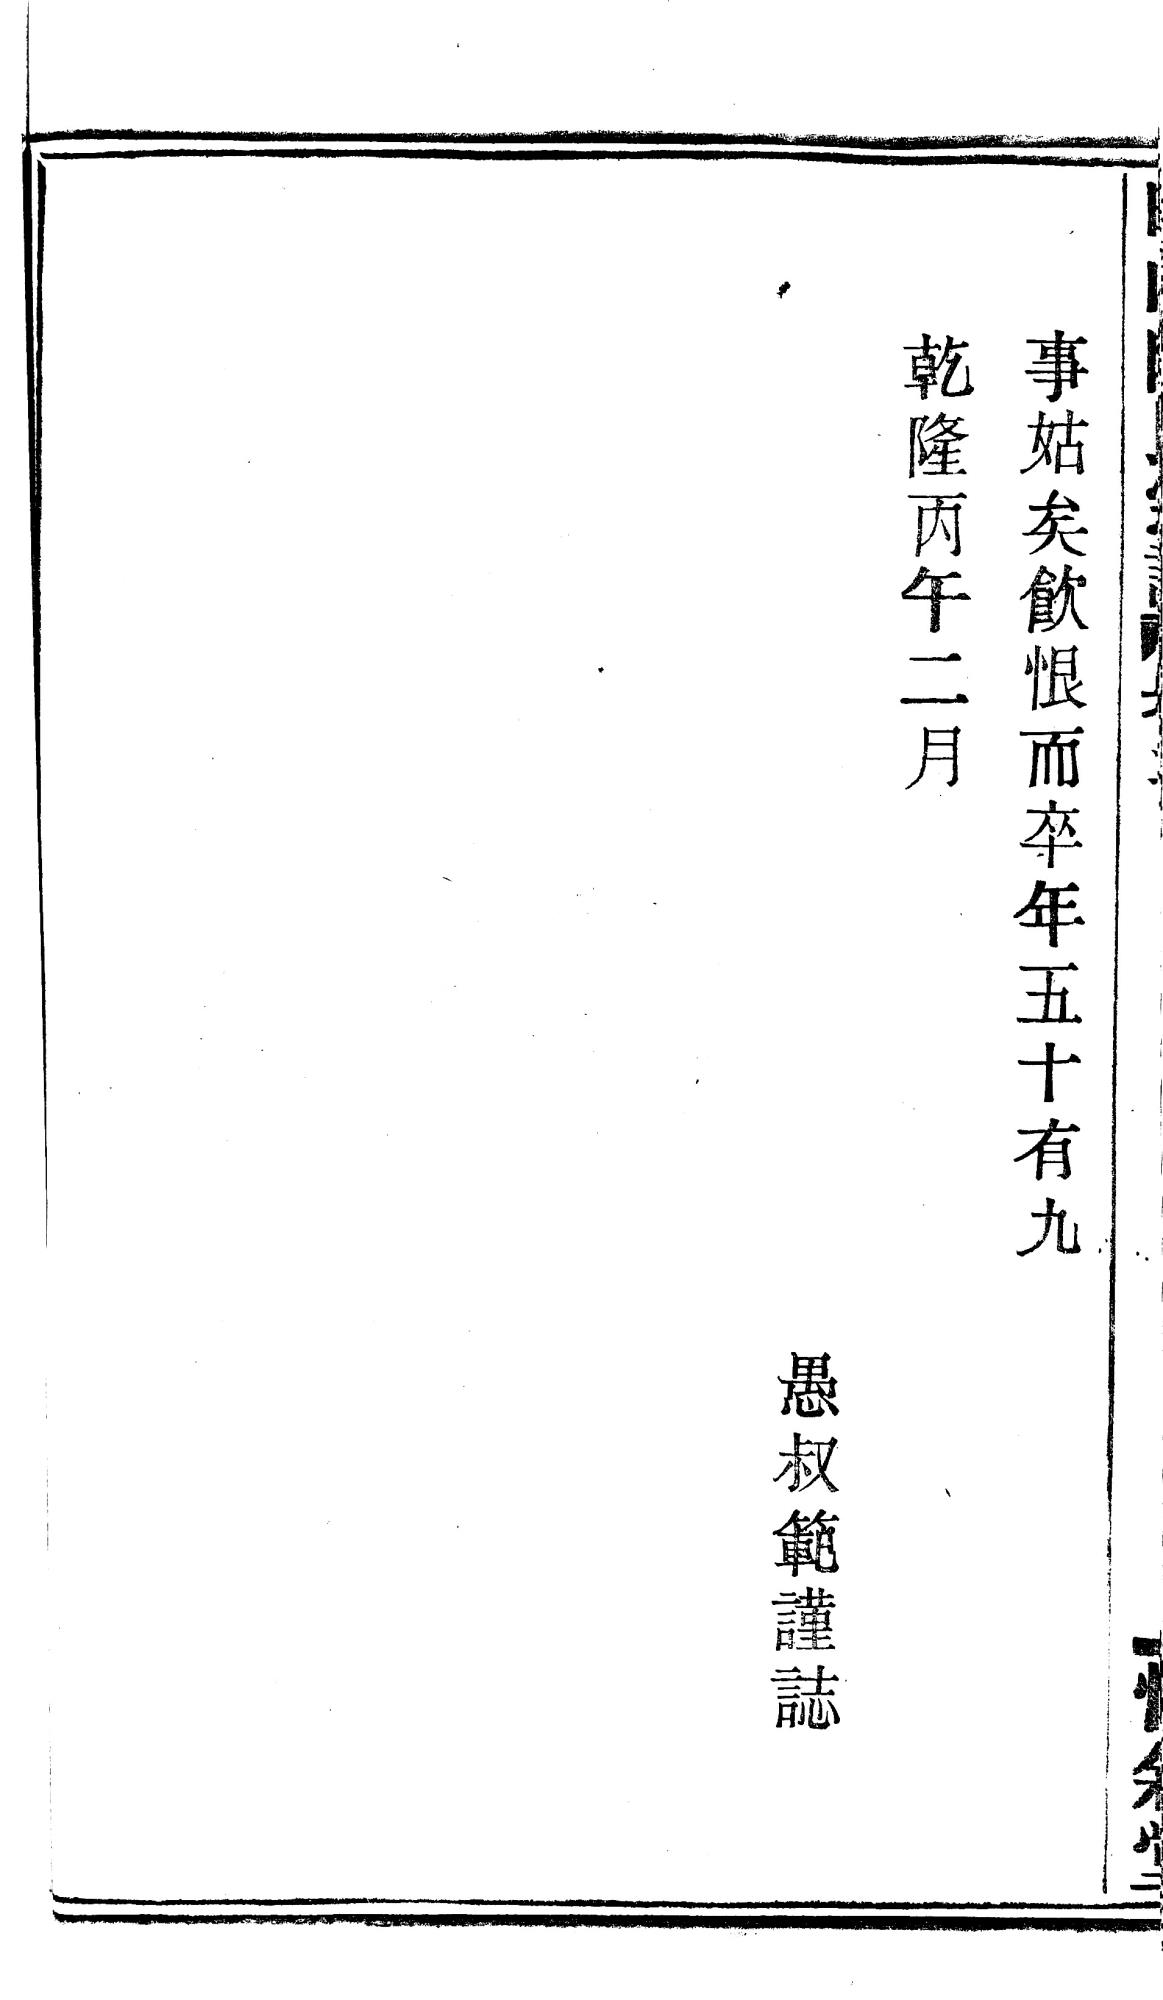 事姑矣飮恨而卒年五十有九
乾隆丙午二月
愚叔範謹誌